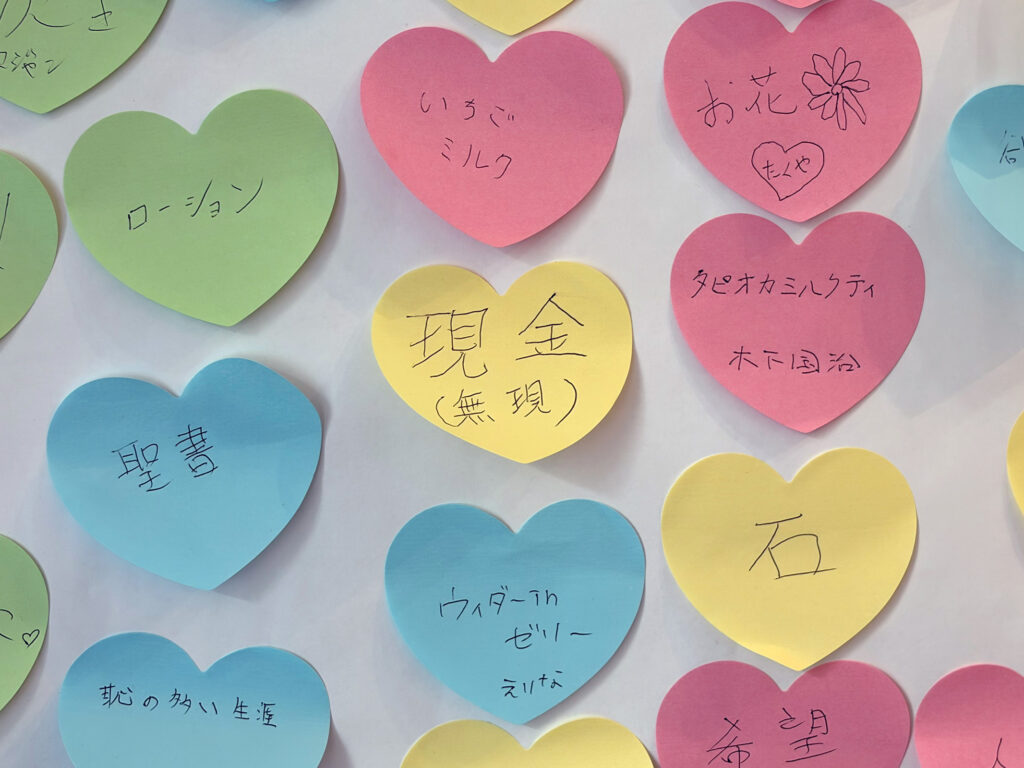 ローション
いちご
ミルク
お花
たくや
タピオカミルクティ
木下国治
現金
(無現)
聖書
石
ウィダーin
ゼリー
えりな
恥の多い生涯
希望